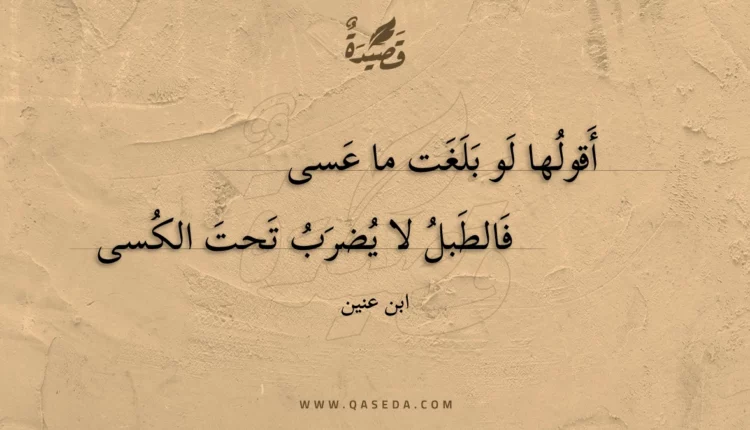 قَصِيْدَةٌ
أَقولُها لَو بَلَغَت ما عَسى
فَالطَبلُ لا يُضرَبُ تَحتَ الكُسى
ابن عنين
WWW.QASEDA.COM